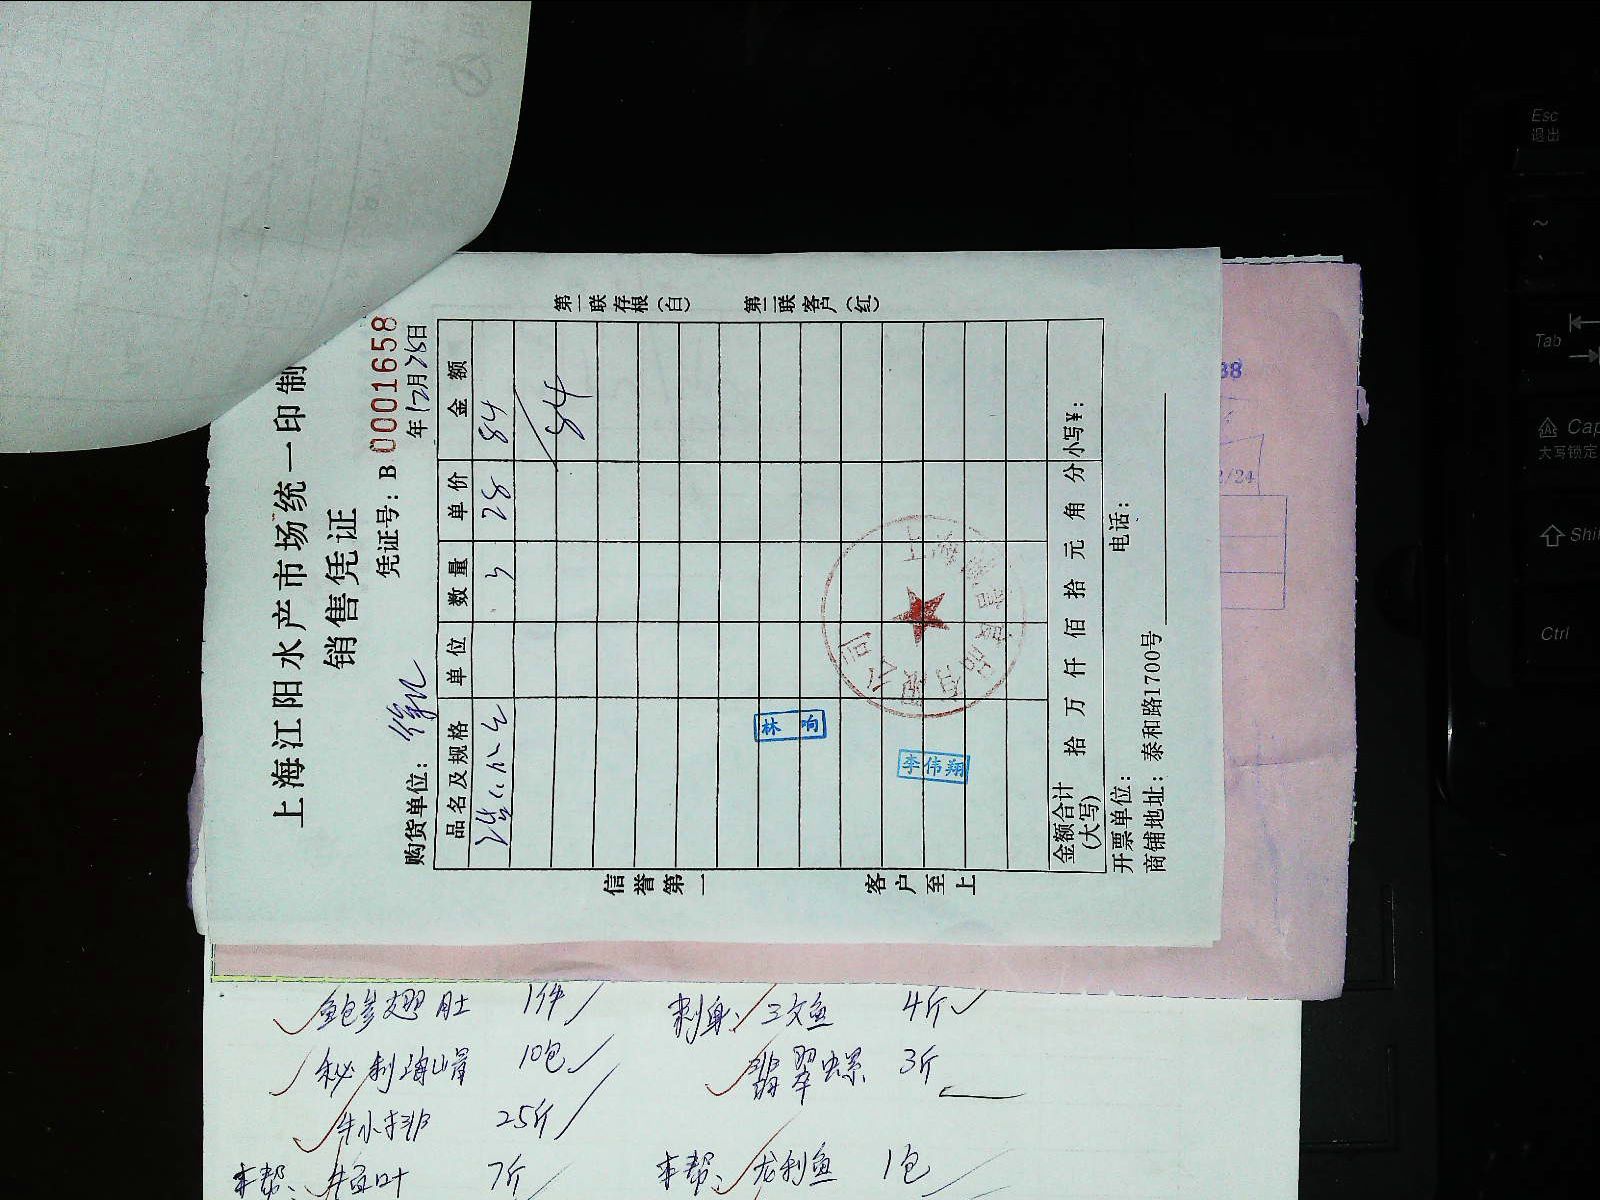 上海江阳水产市场统一印制
销售凭证
凭证号：B 0001658
购货单位：
年12月25日
品名及规格 单位 数量 单价 金额
3 28 84
84
林响
李伟翔
金额合计(大写) 拾 万 仟 佰 拾 元 角 分 小写¥：
开票单位： 电话：
商铺地址：泰和路1700号
信誉第一
客户至上
第一联存根（白）
第二联客户（红）
38
2/24
鲍参翅肚 1件 刺身：三文鱼 4斤
秘制海鲜 10包 翡翠螺 3斤
牛小排 25斤
本帮： 7斤 本帮：龙利鱼 1包
Esc
退出
~
Tab
Cap
大写锁定
Shi
Ctrl